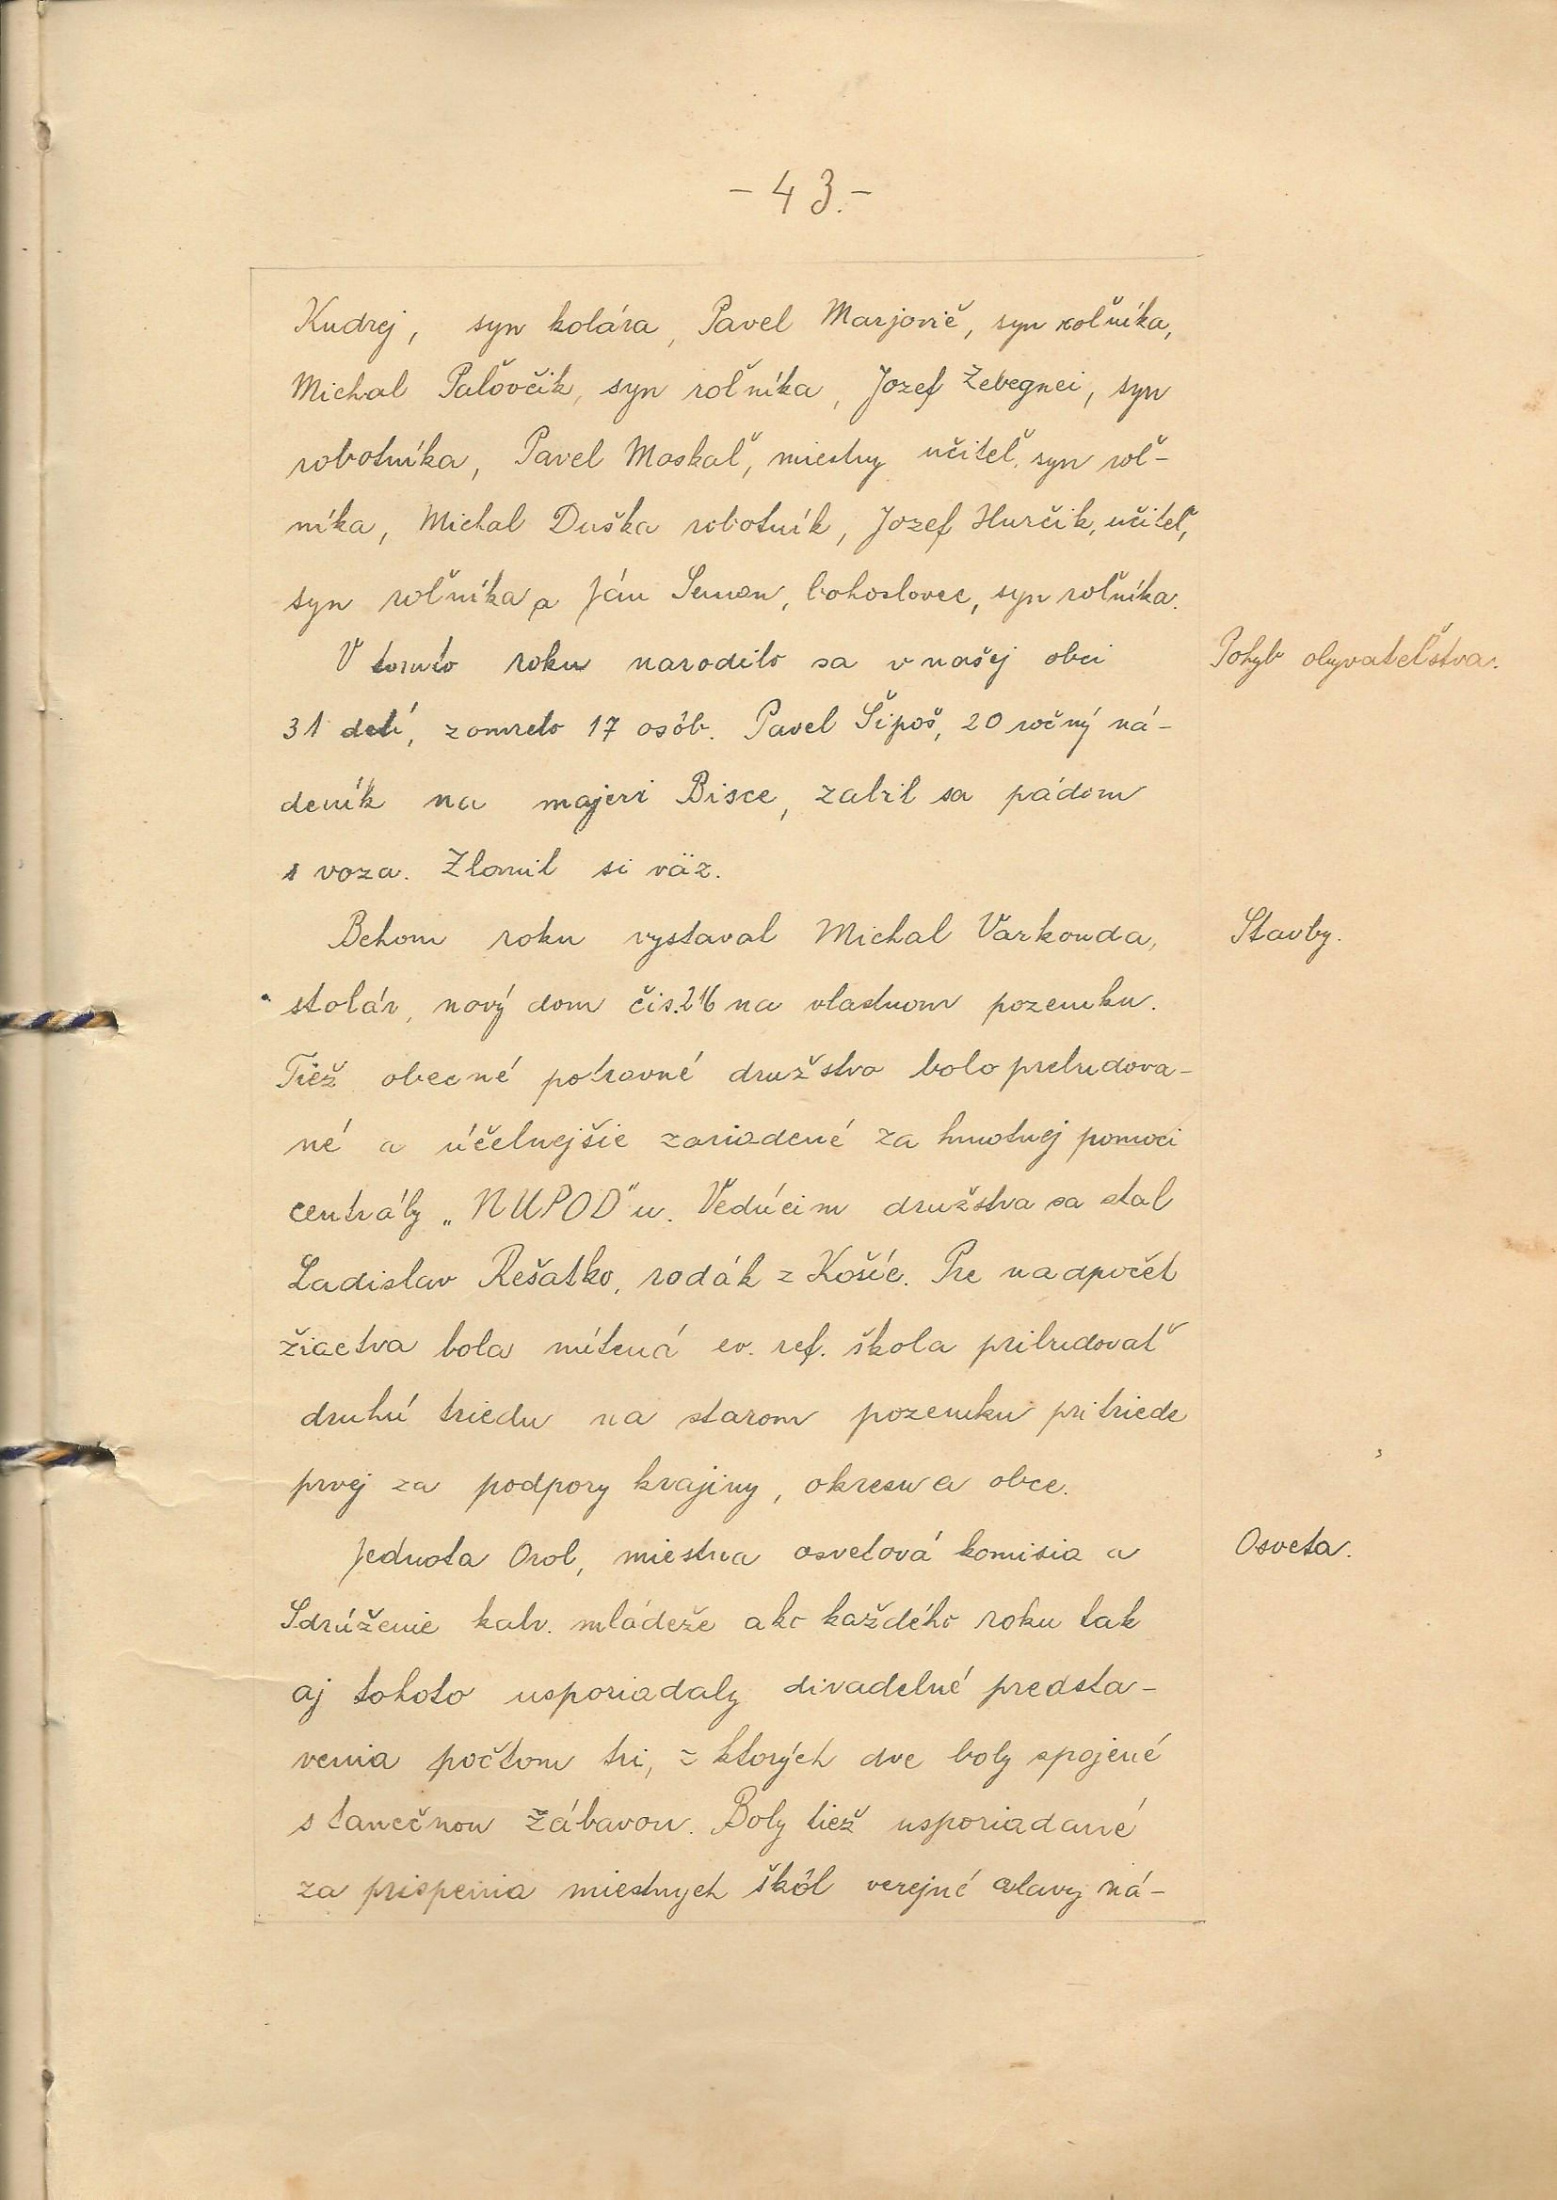 - 43. -
Kudrej, syn kolára, Pavel Marjovič, syn roľníka,
Michal Paľovčik, syn roľníka, Jozef Zebegnei, syn
robotníka, Pavel Moskaľ, miestny učiteľ, syn roľ-
níka, Michal Duška robotník, Jozef Hurčik, učiteľ,
syn roľníka a Ján Seman, bohoslovec, syn roľníka.
V tomto roku narodilo sa v našej obci
Pohyb obyvateľstva.
31 detí, zomrelo 17 osôb. Pavel Šipoš, 20 ročný ná-
deník na majeri Bisce, zabil sa pádom
s voza. Zlomil si väz.
Behom roku vystaval Michal Varkonda,
Stavby.
stolár, nový dom čís. 216 na vlastnom pozemku.
Tiež obecné potravné družstvo bolo prebudova-
né a účelnejšie zariadené za hmotnej pomoci
centrály „NUPOD"u. Vedúcim družstva sa stal
Ladislav Rešatko, rodák z Košíc. Pre nadpočet
žiactva bola nútená ev. ref. škola pribudovať
druhú triedu na starom pozemku pri triede
prvej za podpory krajiny, okresu a obce.
Jednota Orol, miestna osvetová komisia a
Osveta.
Sdrúženie kalv. mládeže ako každého roku tak
aj tohoto usporiadaly divadelné predsta-
venia počtom tri, z ktorých dve boly spojené
s tanečnou zábavou. Boly tiež usporiadané
za prispenia miestnych škôl verejné oslavy ná-